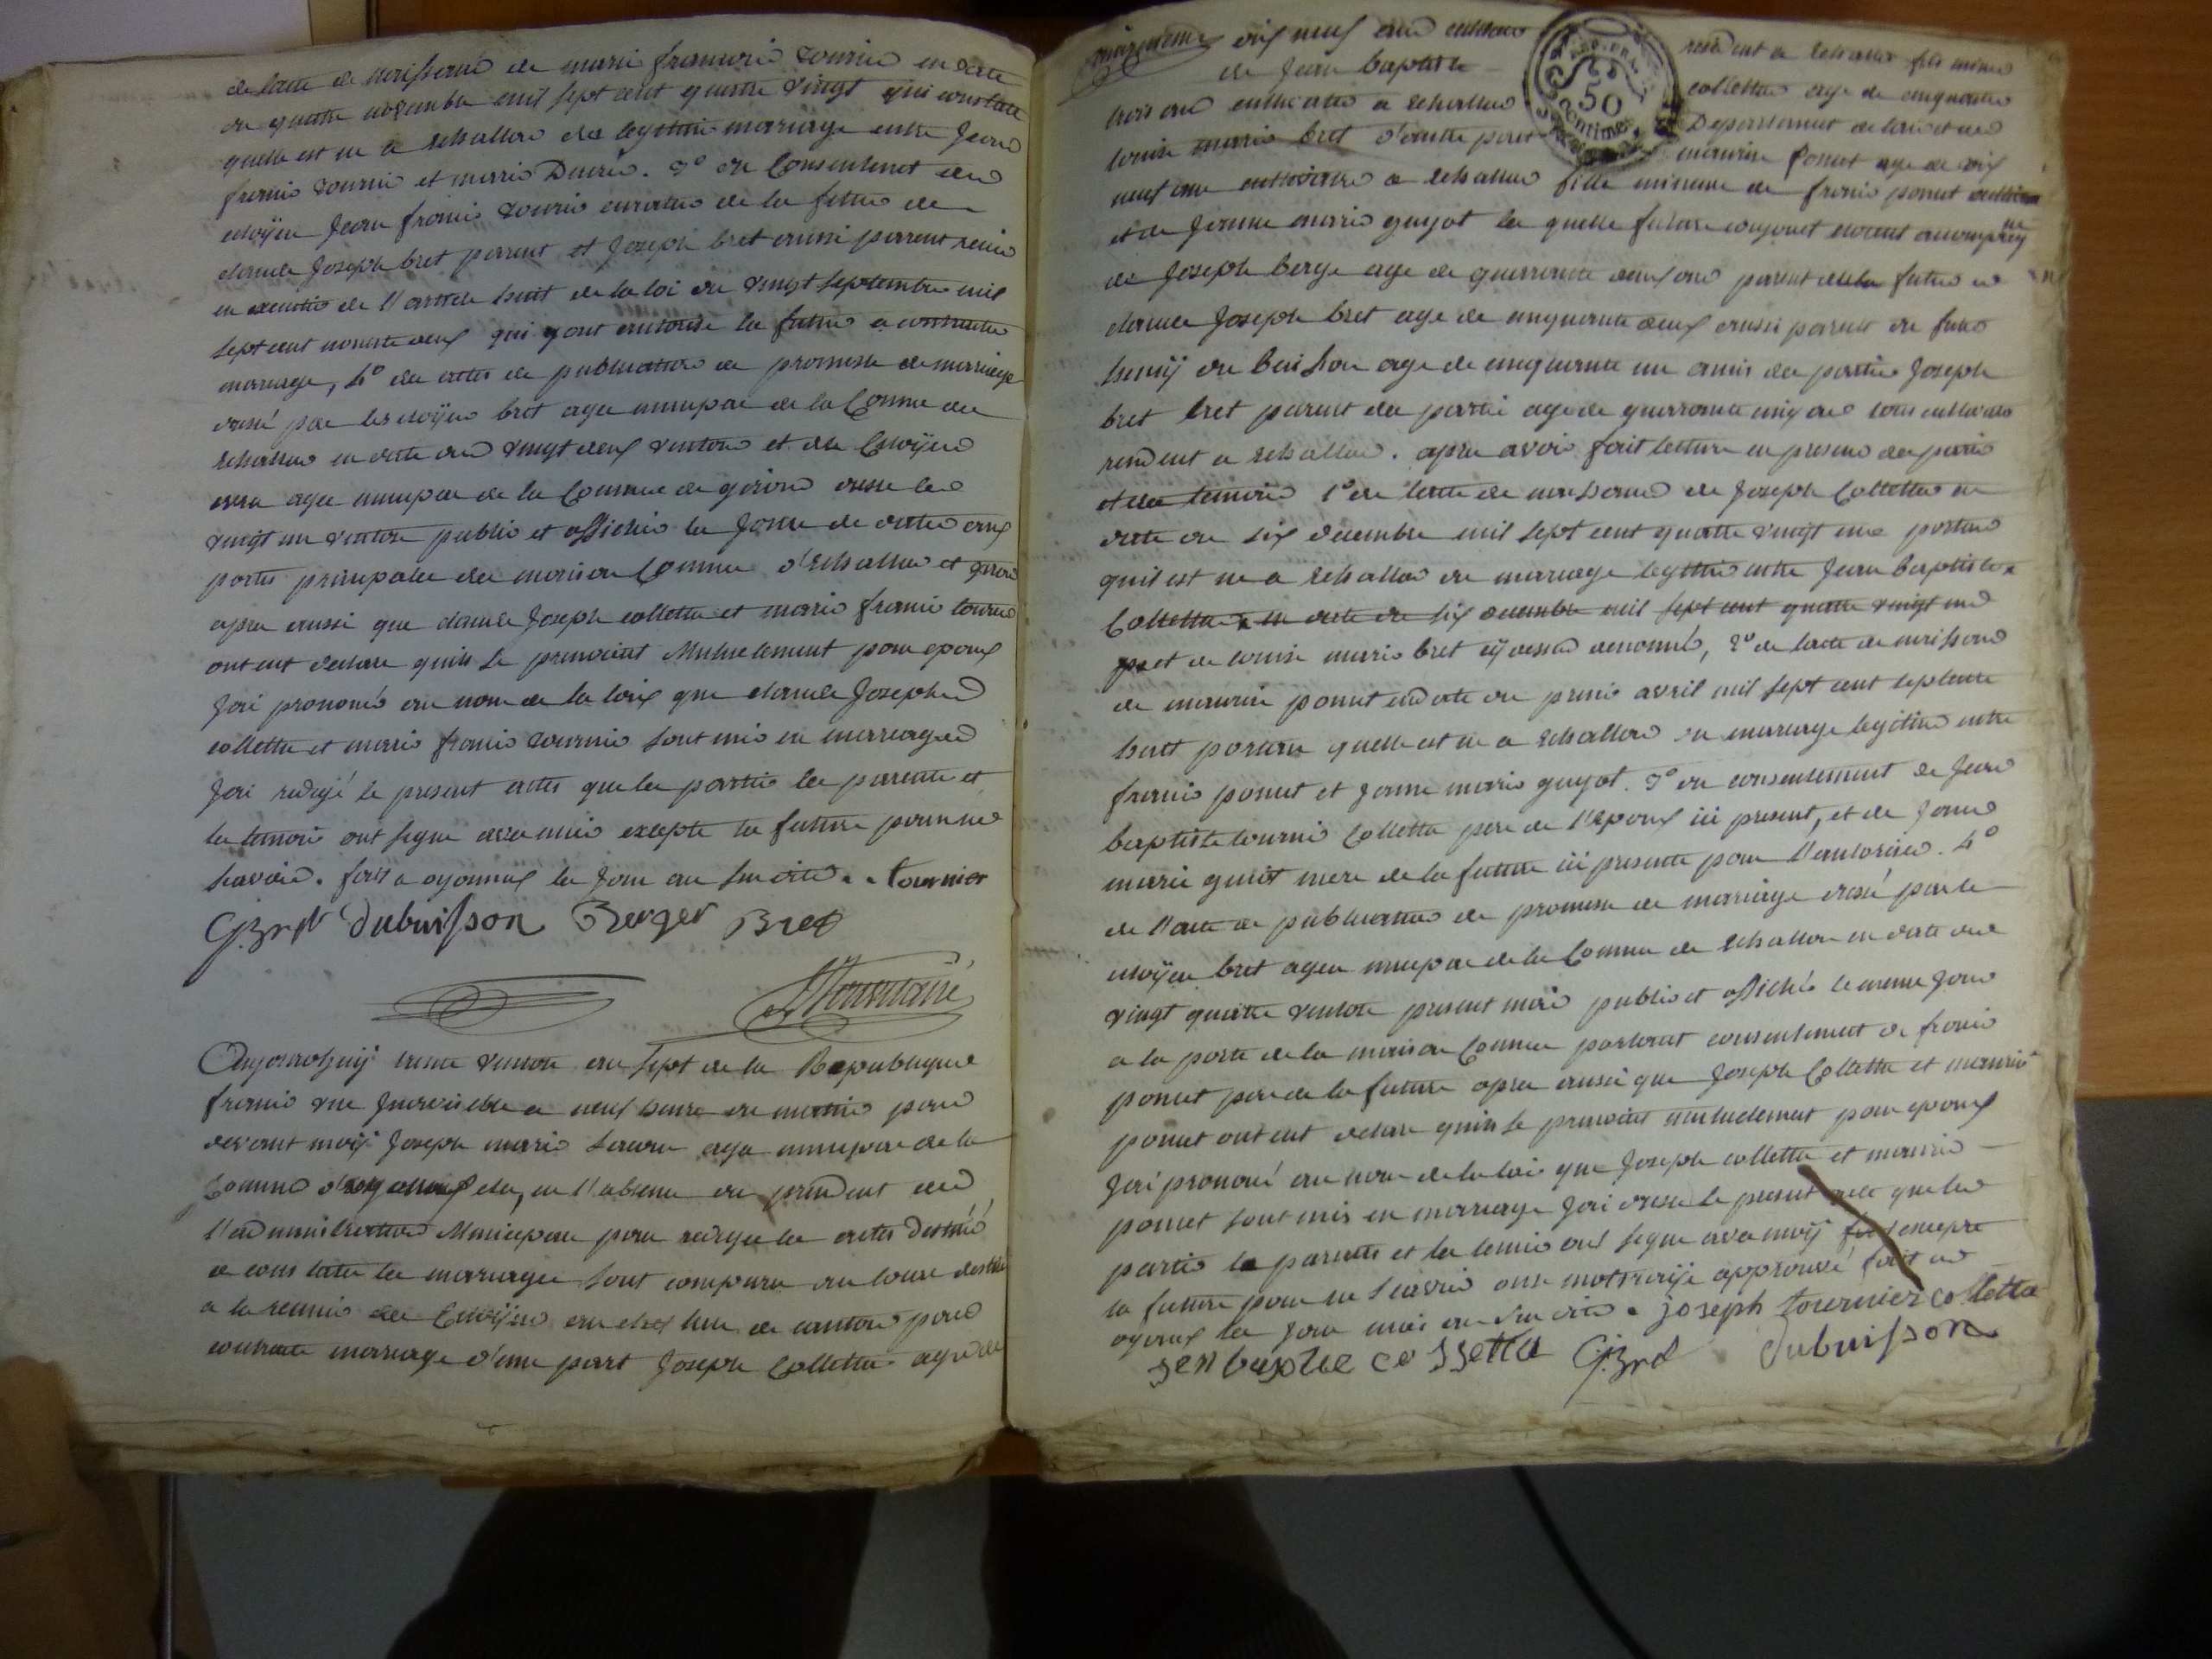 de lacte de naissance de marie francoise tournie en date
du quatre novembre mil sept cent quatre vingt qui constate
quelle est ne a echallon de legitime mariage entre Jean
francois tournie et marie Ducré. 3° du Consentement des
citoyen Jean francois tournie curateur de la future de
claude Joseph bret parent et Joseph bret aussi parent reuni
en execution de l'article huit de la loi du vingt septembre mil
sept cent nonente deux qui y ont autorise la future a contracter
mariage, 4° des actes de publication de promesse de mariage
dressé par les citoyen bret agent municipal de la Comune de
echallon en date du vingt deux ventose et du Citoyen
agent municipal de la Commune de giron dresse le
vingt un ventose publie et affiché la Jour de date aux
portes principales des maison Comune d'Echallon et giron
apres aussi que claude Joseph colletta et marie francoise tournie
ont eut declare quils se prenoient Mutuelement pour epoux
Jai prononcé au nom de la loix que claude Joseph
colletta et marie francoise tournie sont unis en mariage
Jai redigé le present actes que les partie les parents et
les temoin ont signe avec moi excepte la future pour ne
scavoir. fait a oyonnax les Jour an susdite. tournier
C.J. Bret Dubuisson Berger Bret
Aujourdhuy trente ventose an sept de la Republique
francoise une Indivisible a neuf heure du matin par
devant moy Joseph marie agent municipal de la
Comune d'oyonnax elu, en l'absence du president de
l'administration Municipale pour rediger les actes Destiné
a constater les mariages sont comparu au locale destiné
a la reunion des Citoyens au chef lieu de canton pour
contracte mariage d'une part Joseph Colletta age de
dix neuf ans cultivateur resident a echallon fils mineur
de Jean baptiste colletta age de cinquante
trois ans cultivateur a echallon Departement de lain et de
louise marie bret d'autre part maurise ponut age de dix
neuf ans cultivatrice a echallon fille mineure de francois ponut cultivateur
et de Jeanne marie guyot la quelle future conjoint etoient acompagné
de Joseph berge age de quarante deux ans parent de la future
claude Joseph bret age de cinquante deux aussi parent du futur
henrij du buisson age de cinquante un amis des parties Joseph
bret bret parent des partie age de quarante cinq ans tous cultivateur
resident a echallon. apres avoir fait lecture en presence des partie
et des temoin 1° de lacte de naissance de Joseph Colletta en
date du six decembre mil sept cent quatre vingt un portant
quil est ne a echallon du mariage legitime entre Jean baptiste
Colletta en date du six decembre mil sept cent quatre vingt un
et de louise marie bret cy dessus denommé, 2° de lacte de naissance
de maurise ponut en date du premier avril mil sept cent septente
huit portant quelle est ne a echallon du mariage legitime entre
francois ponut et Jeanne marie guyot. 3° du consentement de Jean
baptiste tournie Colletta pere de l'epoux ici present, et de Jeanne
marie guiot mere de la future ici presente pour l'autoriser. 4°
de l'acte de publication de promesse de mariage dressé par le
citoyen bret agent municipal de la Comune de echallon en date du
vingt quatre ventose present mois publie et affiché le meme Jour
a la porte de la maison Comune portant consentement de francois
ponut pere de la future apres aussi que Joseph Colletta et maurise
ponut ont eut declare quils se prenoient mutuelement pour epoux
Jai prononcé au nom de la loi que Joseph colletta et maurise
ponut sont unis en mariage Jai dresse le present acte que les
partie les parents et les temoin ont signe avec moy excepte
la future pour ne scavoir onze mots rayé approuvé fait a
oyonnax les Jour mois an susdite. joseph tournier colletta
jen baptite colletta C.J. Bret Dubuisson